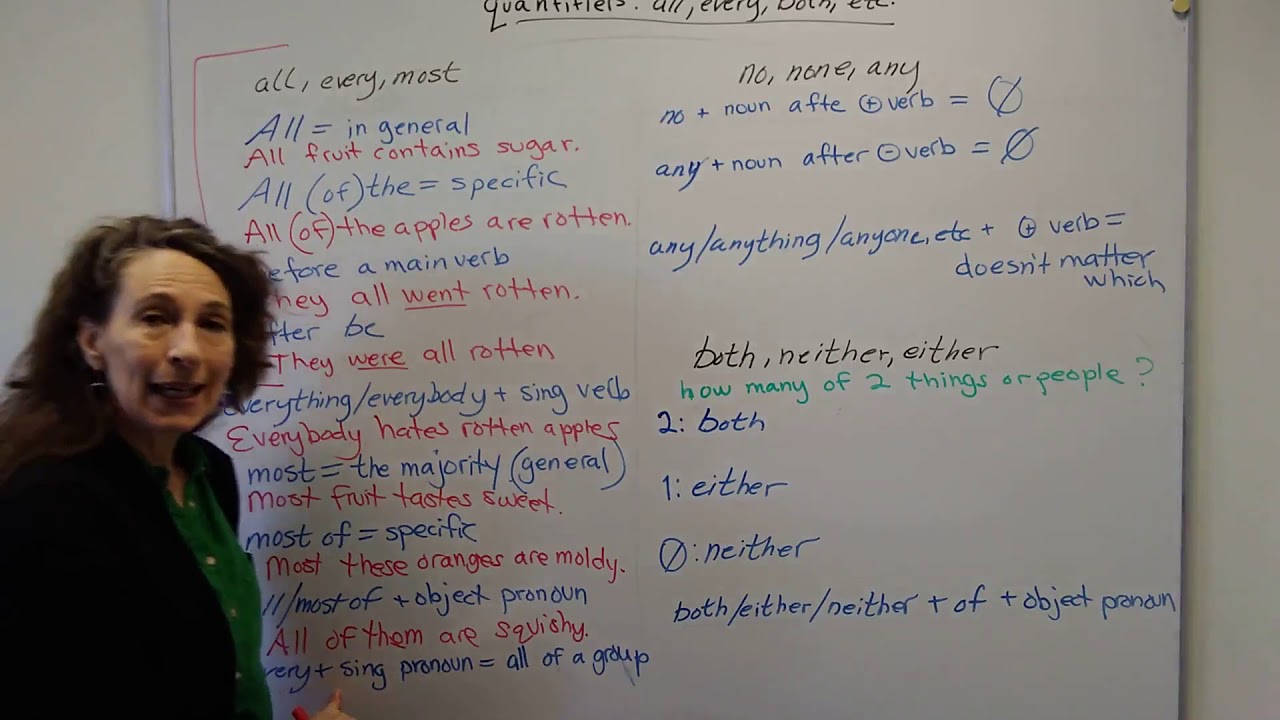 quantifiers: all, every, both, etc.
all, every, most
All = in general
All fruit contains sugar.
All (of) the = specific
All (of) the apples are rotten.
efore a main verb
hey all went rotten.
fter be
They were all rotten
everything/everybody + sing verb
Everybody hates rotten apples
most = the majority (general)
Most fruit tastes sweet.
most of = specific
Most these oranges are moldy.
ll/most of + object pronoun
All of them are squishy.
very + sing pronoun = all of a group
no, none, any
no + noun afte ⊕ verb = ∅
any + noun after ⊖ verb = ∅
any/anything/anyone, etc + ⊕ verb =
doesn't matter
which
both, neither, either
how many of 2 things or people?
2: both
1: either
∅: neither
both/either/neither + of + object pronoun